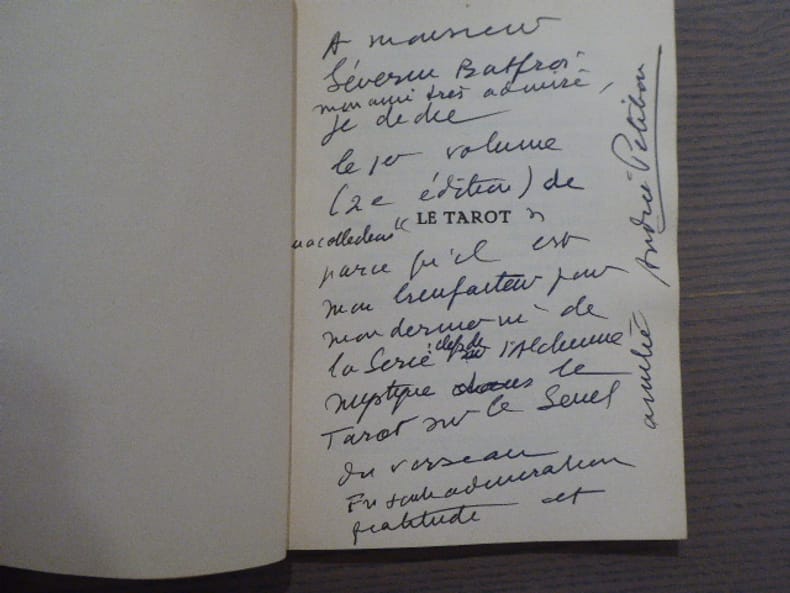 A monsieur
Séverin Batfroi
mon ami très admiré,
je dédie
le 1er volume
(2e édition) de
ma collection "
LE TAROT "
parce qu'il est
mon bienfaiteur pour
mon dernier né de
la Série clefs de l'Alchimie
mystique dans le
Tarot sur le Seuil
du verseau
En toute admiration
gratitude et
amitié Andrée Petibon